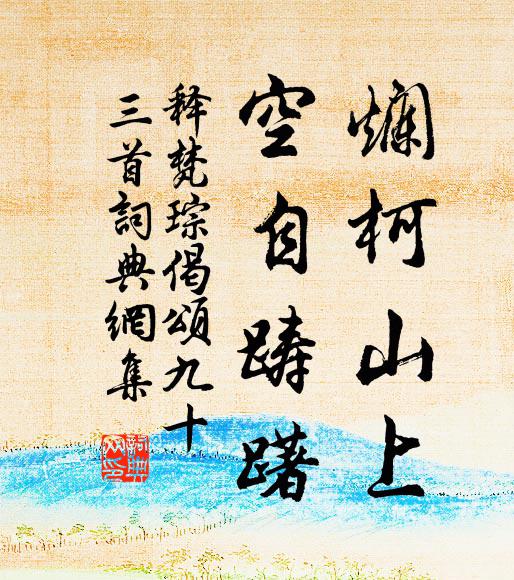 爛柯山上
空自踌躇
释梵琮偈頌九十
三首詞典網集